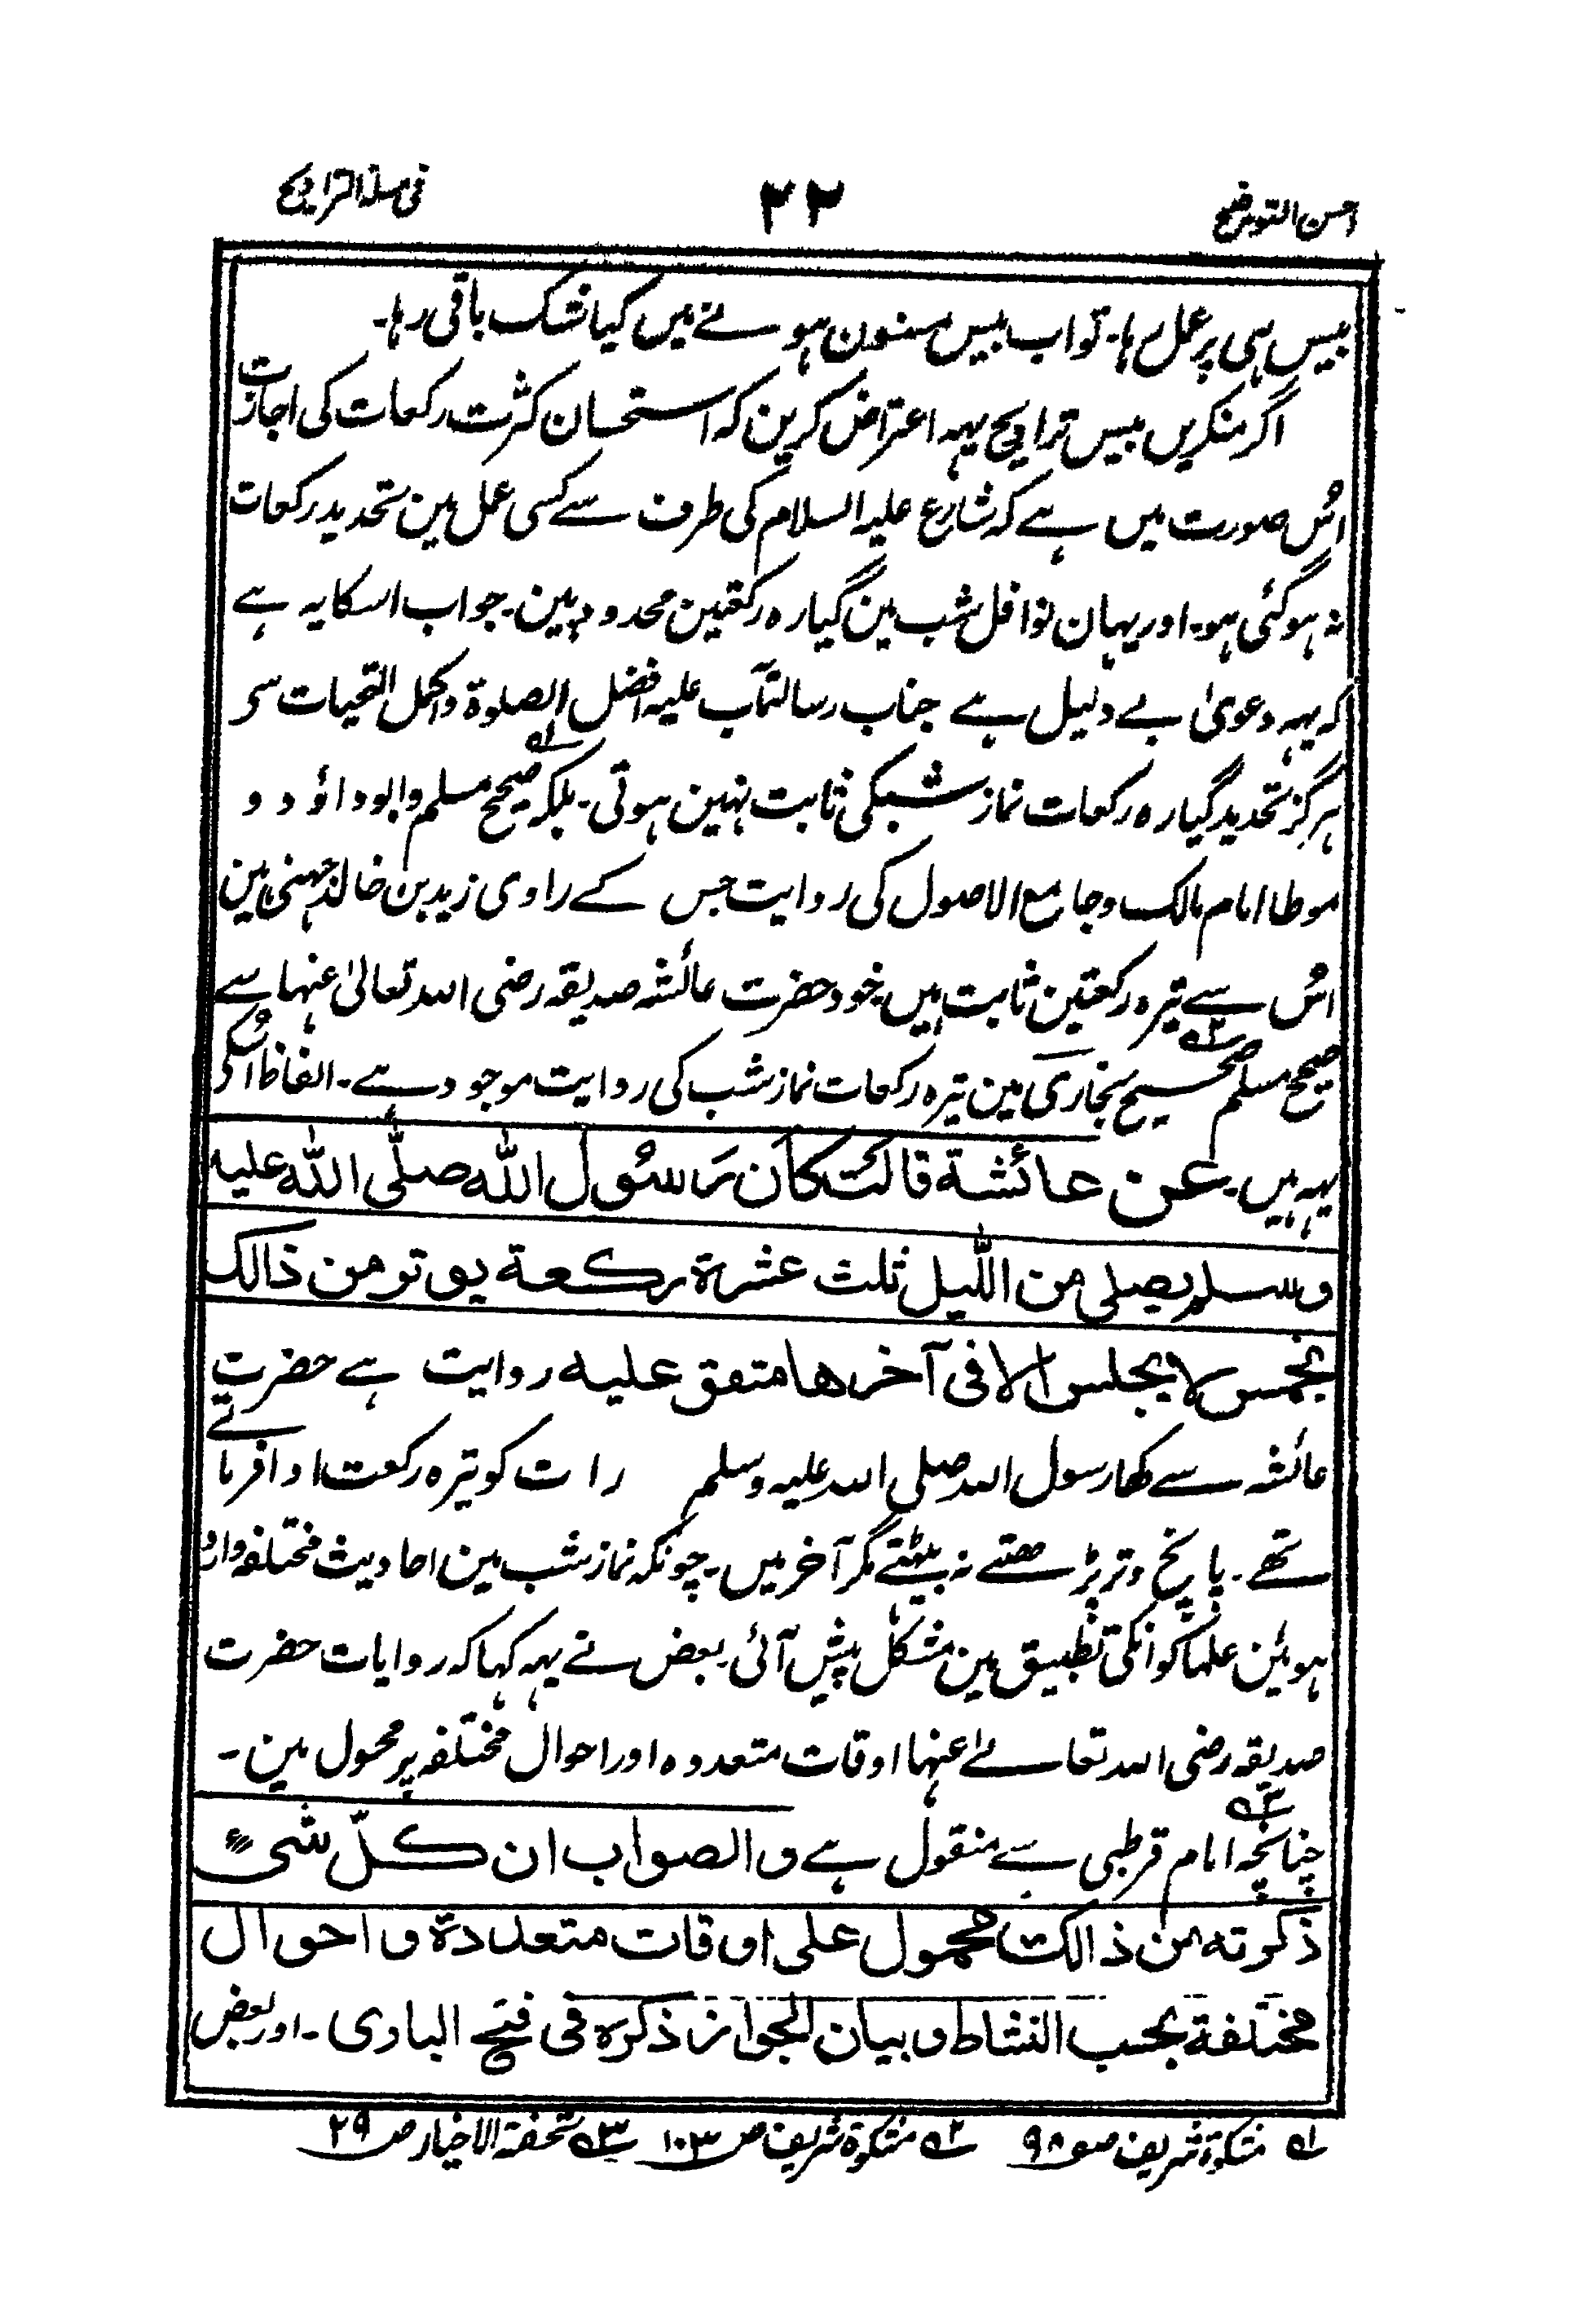 احسن التوضیح ۲۲ فی مسئلۃ التراویح
بیس ہی پر عمل رہا۔ تو اب بیس مسنون ہونے میں کیا شک باقی رہا۔
اگر منکریں بیس تراویح یہہ اعتراض کرین کہ استحسان کثرت رکعات کی اجازت
اُس صورت میں ہے کہ شارع علیہ السلام کی طرف سے کسی عمل مین تحدید رکعات
نہ ہو گئی ہو۔ اور یہان نوافل شب مین گیارہ رکعتین محدود ہین۔ جواب اسکا یہ ہے
کہ یہہ دعویٰ بے دلیل ہے جناب رسالتمآب علیہ افضل الصلوۃ واکمل التحیات سر
ہرگز تحدید گیارہ رکعات نماز شبکی ثابت نہین ہوتی۔ بلکہ صحیح ۱ مسلم وابوداؤد و
موطا امام مالک وجامع الاصول کی روایت جس کے راوی زید بن خالد جہنی ہین
اُس سے تیرہ رکعتین ثابت ہیں خود حضرت عائشہ صدیقہ رضی اللہ تعالیٰ عنہا سے
صحیح مسلم ۲ صحیح بخاری مین تیرہ رکعات نماز شب کی روایت موجود ہے۔ الفاظ اُسکی
یہہ ہیں۔ عن عائشة قالت كان رسول الله صلى الله عليه
وسلم يصلى من الليل ثلث عشرة ركعة يوتر من ذالك
بخمس لا يجلس الا فى آخرها متفق عليه روایت ہے حضرت
عائشہ سے کہا رسول اللہ صلی اللہ علیہ وسلم رات کو تیرہ رکعت ادا فرماتے
تھے۔ پانچ وتر پڑھتے نہ بیٹھتے مگر آخر میں۔ چونکہ نماز شب مین احادیث مختلفہ وارد
ہوئین علما کو انکی تطبیق مین مشکل پیش آئی بعض نے یہہ کہا کہ روایات حضرت
صدیقہ رضی اللہ تعالےٰ عنہا اوقات متعددہ اور احوال مختلفہ پر محمول ہین۔
چنانچہ ۳ امام قرطبی سے منقول ہے والصواب ان كلّ شئ
ذكرته من ذالك محمول على اوقات متعددة واحوال
مختلفة بحسب النشاط وبيان الجواز ذكره فى فتح البارى۔ اور بعض
۱ مشکوۃ شریف صفحہ ۹۸ ۲ مشکوۃ شریف ص ۱۰۳ ۳ تحفۃ الاخیار ص ۲۹